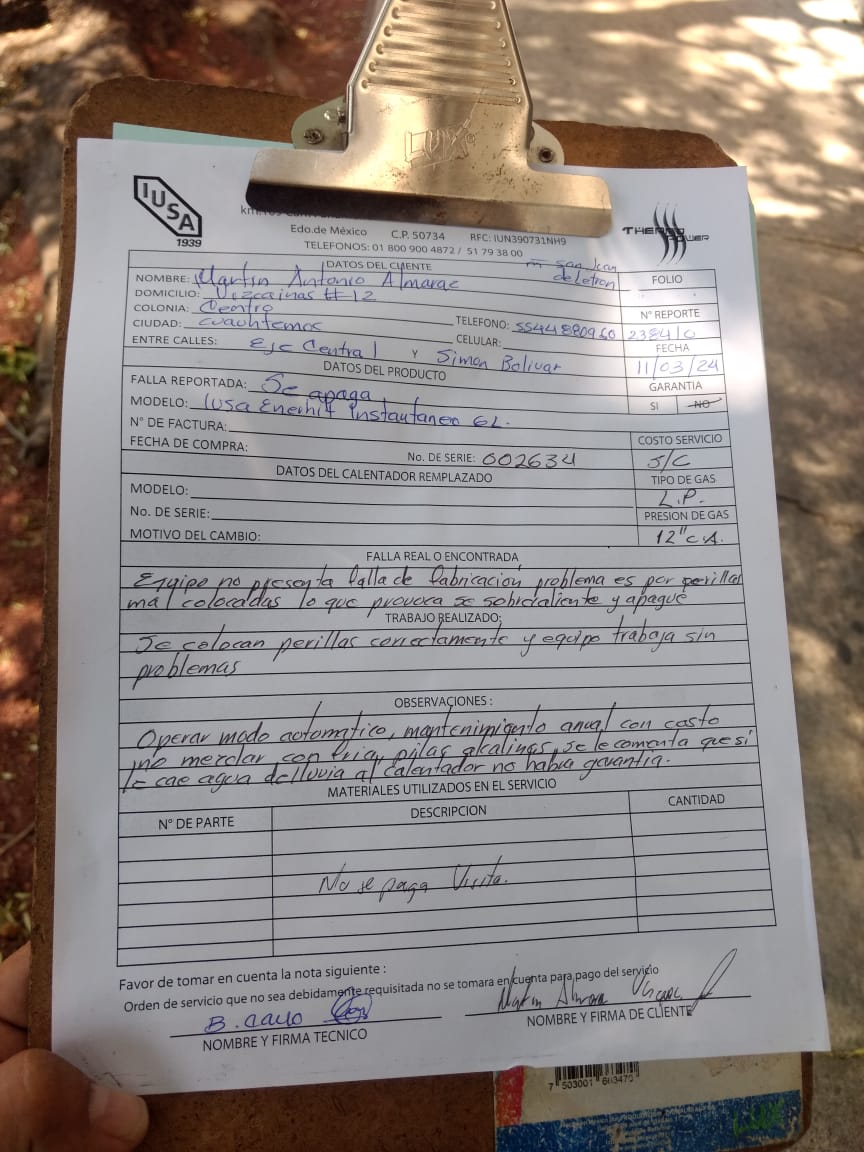 LUX
IUSA
1939
Edo.de México C.P. 50734 RFC: IUN390731NH9
TELEFONOS: 01 800 900 4872 / 51 79 38 00
THERMO POWER
DATOS DEL CLIENTE
m san Juan
de Letran
FOLIO
NOMBRE: Martin Antonio Almaraz
DOMICILIO: Vizcainas # 12
COLONIA: Centro
Nº REPORTE
CIUDAD: cuauhtemoc TELEFONO: 5544880960 2384/0
ENTRE CALLES: Eje Central Y Simon Bolivar CELULAR:
FECHA
11/03/24
DATOS DEL PRODUCTO
GARANTIA
FALLA REPORTADA: Se apaga
SI NO
MODELO: Iusa Enerhit Instantaneo 6L.
N° DE FACTURA:
COSTO SERVICIO
FECHA DE COMPRA: No. DE SERIE: 002634 S/C
DATOS DEL CALENTADOR REMPLAZADO
TIPO DE GAS
MODELO: L.P.
No. DE SERIE: PRESION DE GAS
MOTIVO DEL CAMBIO: 12"c A.
FALLA REAL O ENCONTRADA
Equipo no presenta falla de fabricación problema es por perillas
mal colocadas lo que provoca se sobrecaliente y apague
TRABAJO REALIZADO:
Se colocan perillas correctamente y equipo trabaja sin
problemas
OBSERVACIONES :
Operar modo automatico, mantenimiento anual con costo
no mezclar con fria, pilas alcalinas, se le comenta que si
le cae agua de lluvia al calentador no habra garantia.
MATERIALES UTILIZADOS EN EL SERVICIO
N° DE PARTE DESCRIPCION CANTIDAD
No se paga Visita.
Favor de tomar en cuenta la nota siguiente :
Orden de servicio que no sea debidamente requisitada no se tomara en cuenta para pago del servicio
B. Cano Martin Almaraz
NOMBRE Y FIRMA TECNICO NOMBRE Y FIRMA DE CLIENTE
7 503001 663470
LUX